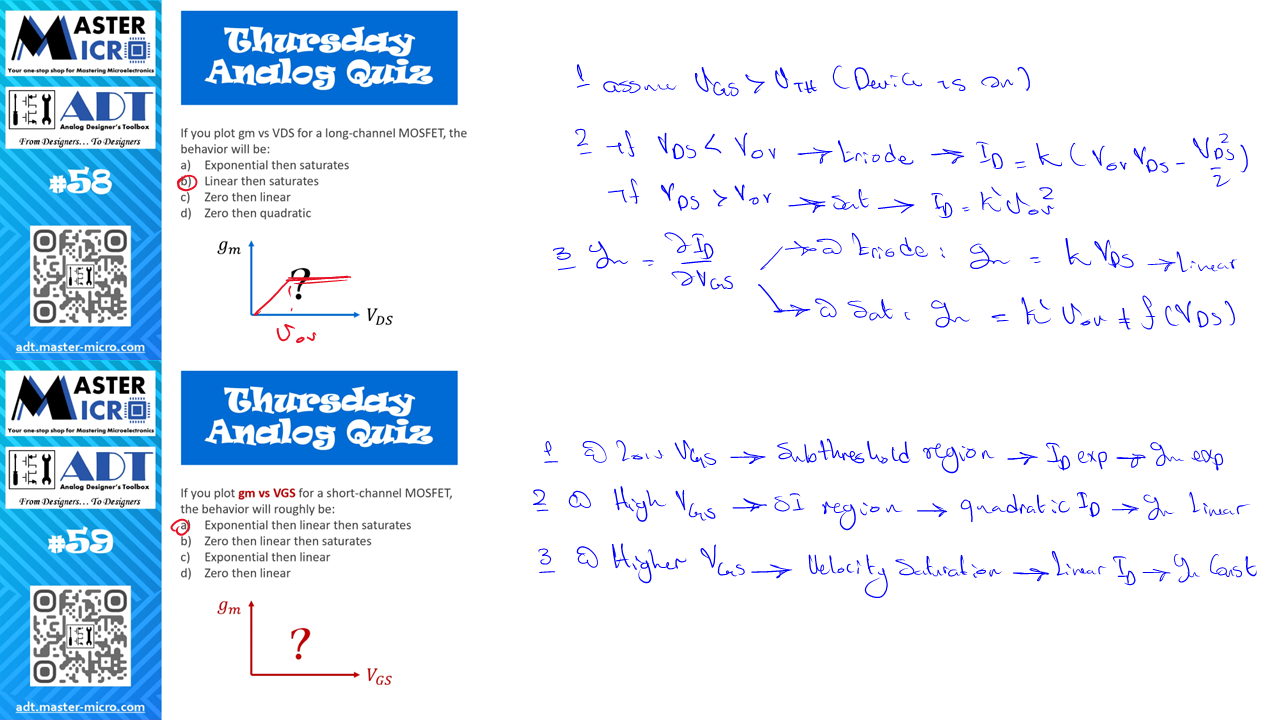 MASTER
MICRO
Your one-stop shop for Mastering Microelectronics
ADT
Analog Designer's Toolbox
From Designers… To Designers
#58
adt.master-micro.com
Thursday
Analog Quiz
If you plot gm vs VDS for a long-channel MOSFET, the
behavior will be:
a) Exponential then saturates
b) Linear then saturates
c) Zero then linear
d) Zero then quadratic
gm
?
VDS
Vov
1 assume VGS > VTH (Device is on)
2 if VDS < Vov → triode → ID = k (Vov VDS - VDS²/2)
if VDS > Vov → sat → ID = k' Vov²
3 gm = ∂ID/∂VGS → @ triode : gm = k VDS → linear
→ @ sat : gm = k' Vov ≠ f(VDS)
MASTER
MICRO
Your one-stop shop for Mastering Microelectronics
ADT
Analog Designer's Toolbox
From Designers… To Designers
#59
adt.master-micro.com
Thursday
Analog Quiz
If you plot gm vs VGS for a short-channel MOSFET,
the behavior will roughly be:
a) Exponential then linear then saturates
b) Zero then linear then saturates
c) Exponential then linear
d) Zero then linear
gm
?
VGS
1 @ Low VGS → Subthreshold region → ID exp → gm exp
2 @ High VGS → SI region → quadratic ID → gm Linear
3 @ Higher VGS → Velocity Saturation → Linear ID → gm Const